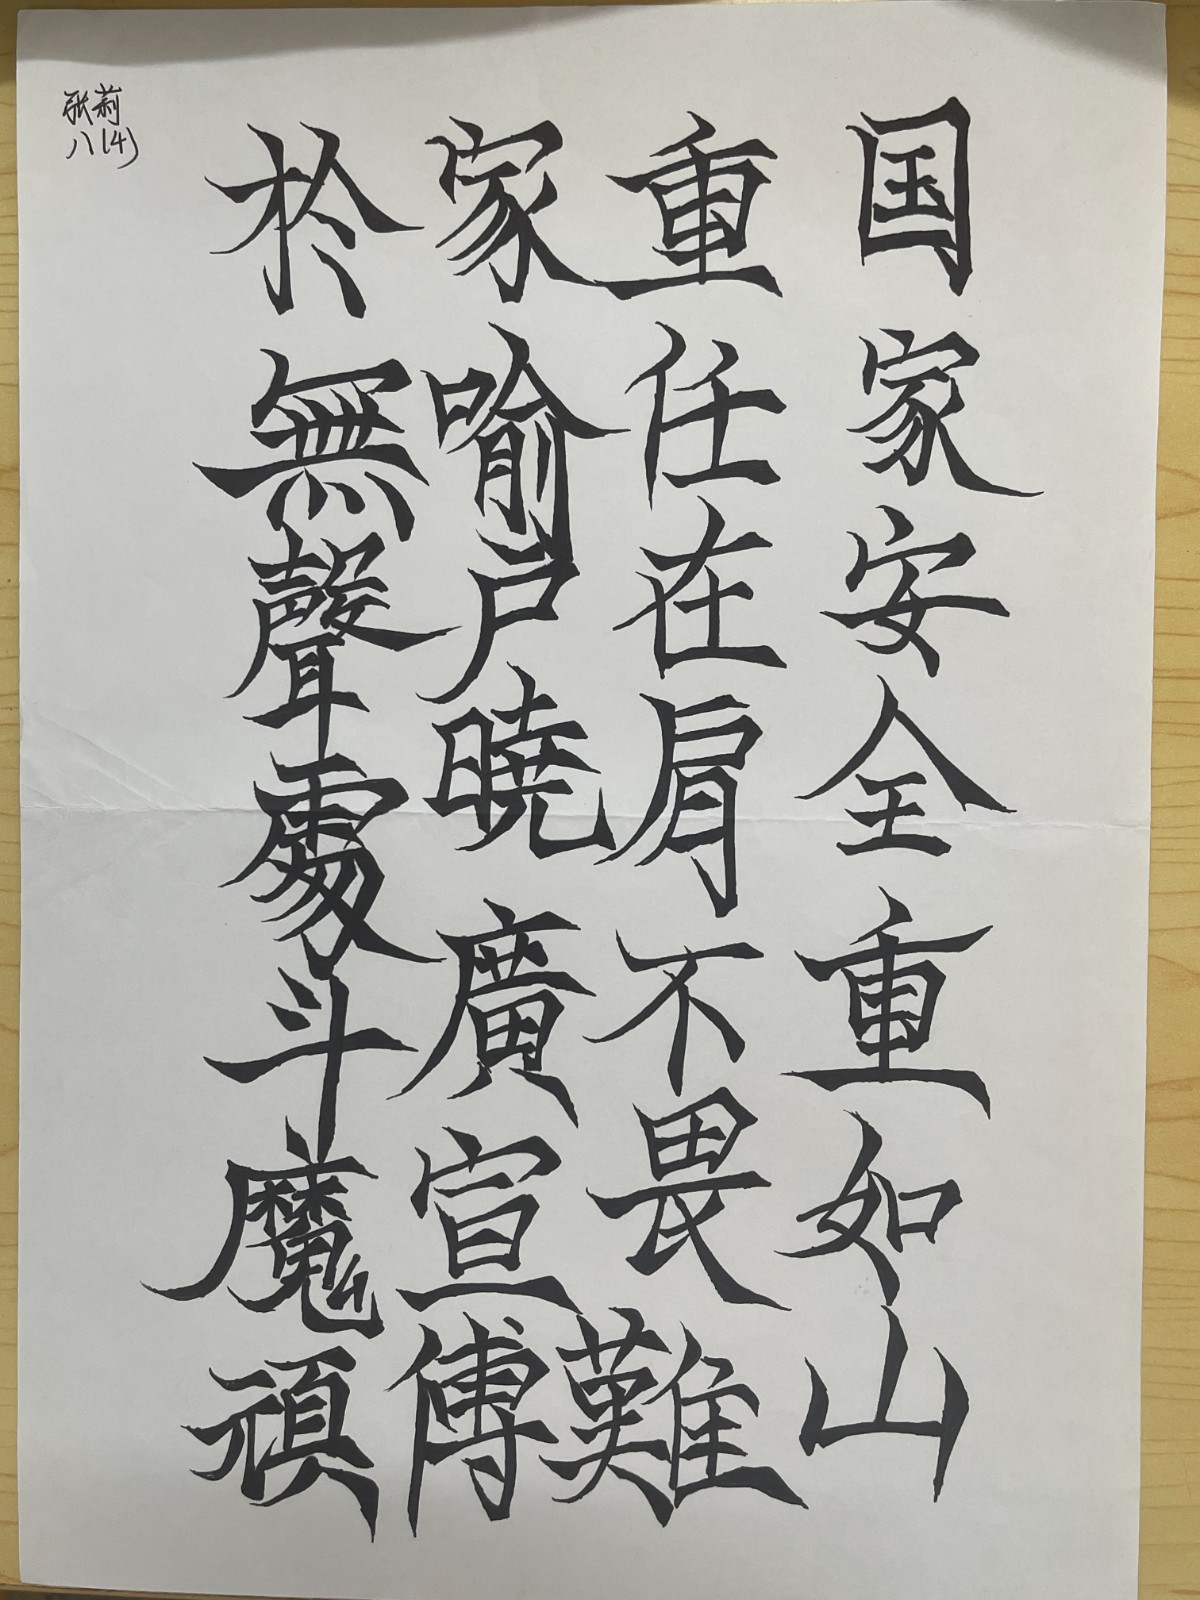 国家安全重如山
重任在肩不畏難
家喻户曉廣宣傳
於無聲處斗魔頑
张莉
八(4)